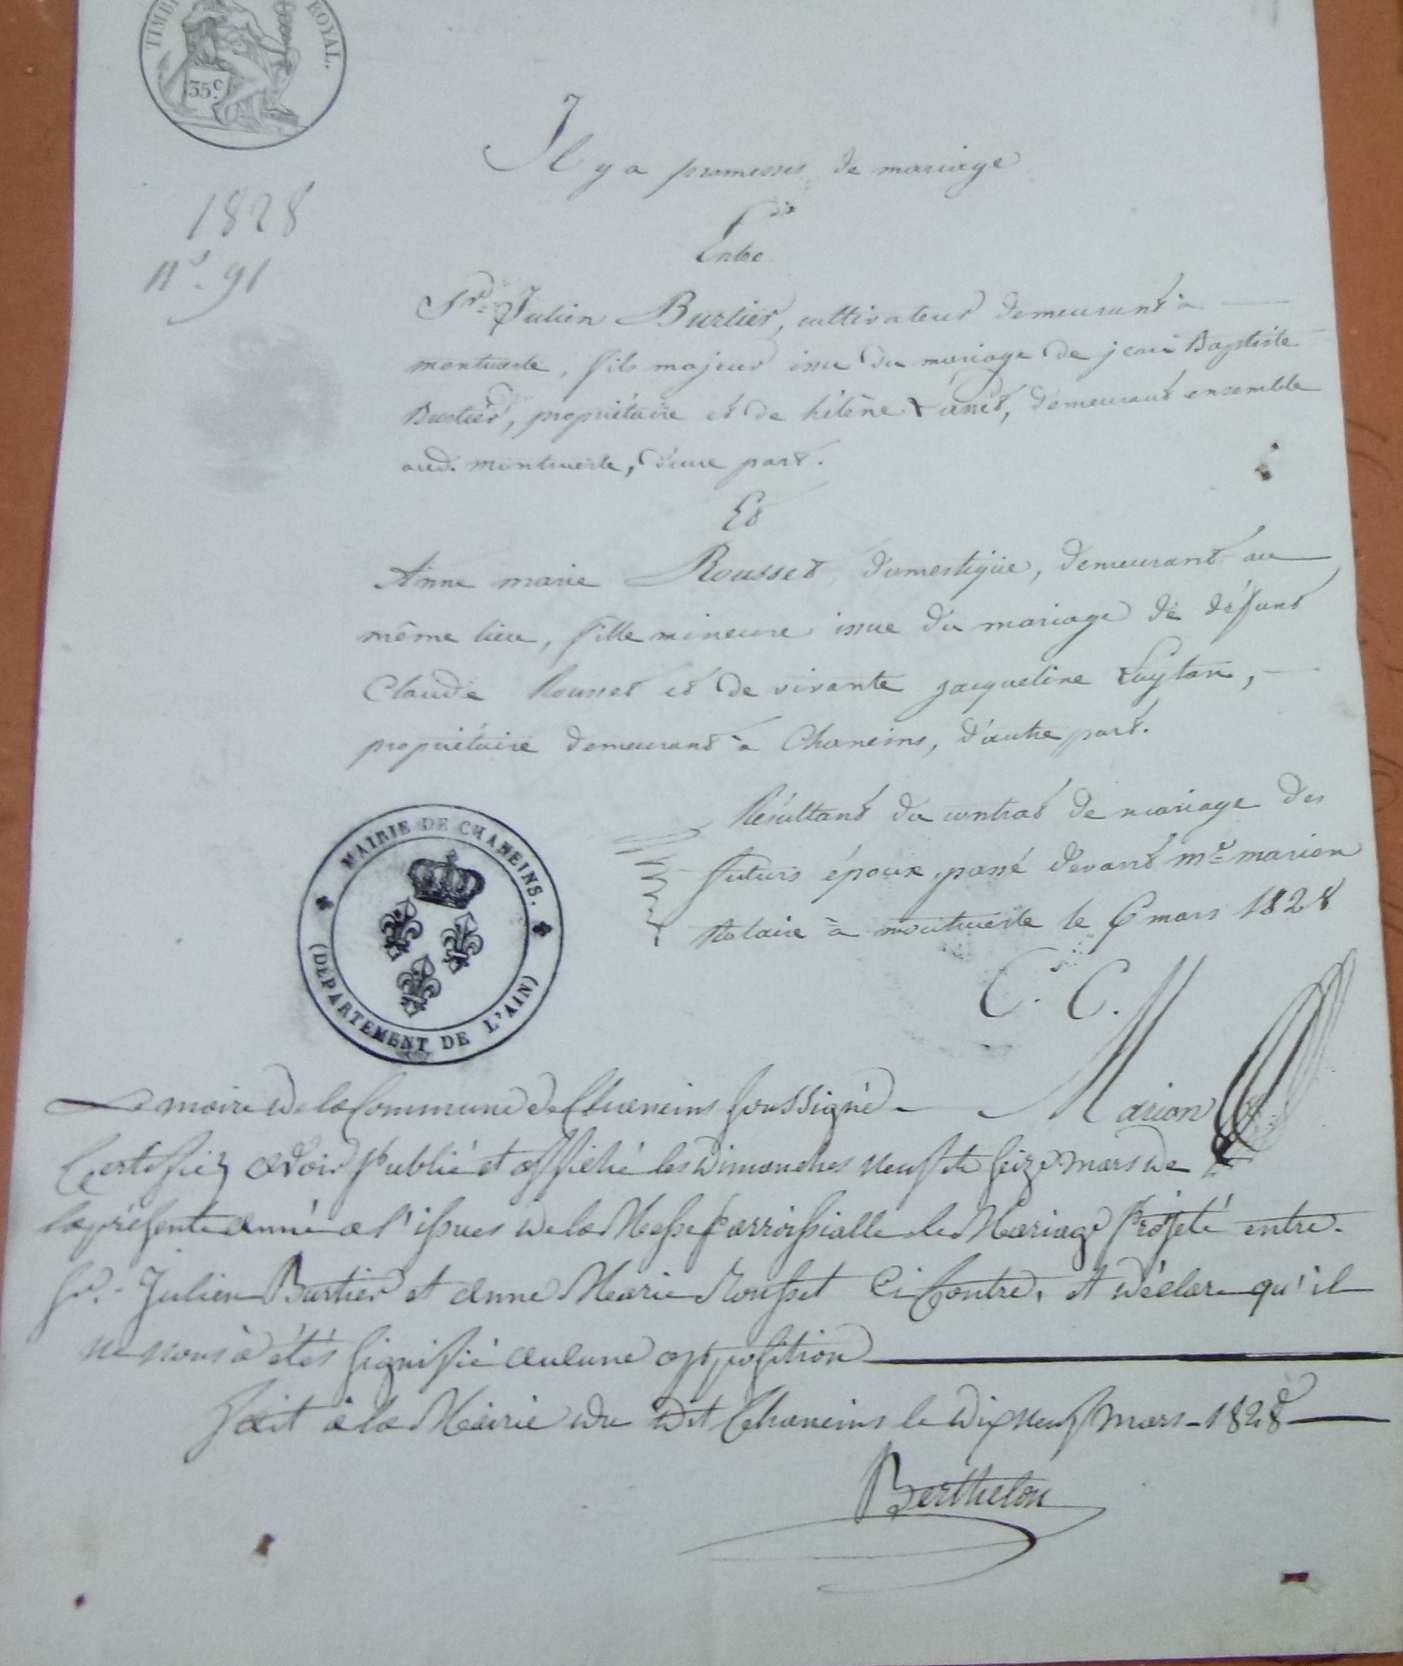 TIMBRE ROYAL.
35c.
1828
N°. 91
Il y a promesses de mariage
Entre
Sr. Julien Burtier, cultivateur demeurant à
montmerle, fils majeur issu du mariage de jean Baptiste
Burtier, propriétaire et de hélène demeurant ensemble
aud. montmerle, d'une part.
Et
Anne marie Rousset domestique, demeurant au
même lieu, fille mineure issue du mariage de défunt
Claude Rousset et de vivante jacqueline
propriétaire demeurant à Chaneins, d'autre part.
Résultant du contrat de mariage des
futurs époux, passé devant me. marion
Notaire à montmerle le 6 mars 1828
C. C.
Marion
MAIRIE DE CHANEINS.
(DÉPARTEMENT DE L'AIN)
Le maire de la Commune de Chaneins Soussigné
Certifiez avoir publié et affiché les Dimanches neuf et seize mars de
la présente année a l'issues de la Messe parroissialle le Mariage Projeté entre
Sr. Julien Burtier et anne Marie Rousset Ci Contre, et déclare qu'il
ne nous à étés signifié aucune opposition
fait à la Mairie du dit Chaneins le dix neuf mars 1828
Berthelon